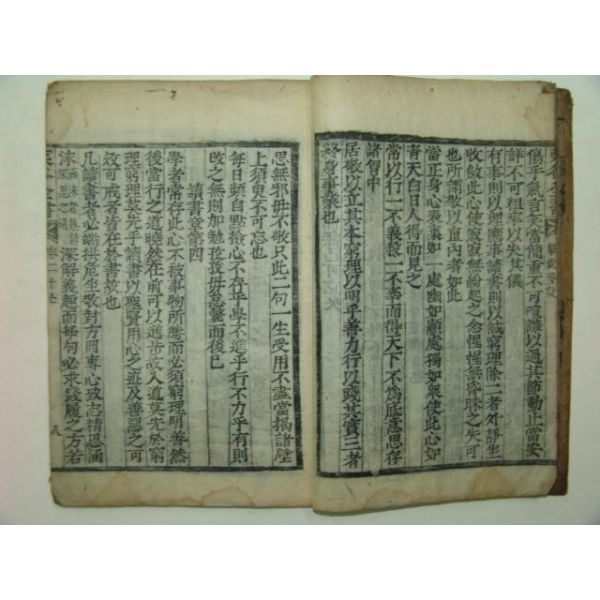 栗谷全書
傷乎氣言笑當簡重不可喧譁以過其節動止當安
詳不可粗率以失其儀
有事則以理應事讀書則以誠窮理除二者外靜坐
收斂此心使寂寂無紛起之念惺惺無昏昧之失可
也所謂敬以直內者如此
當正身心表裏如一處幽如顯處獨如衆使此心如
青天白日人得而見之
常以行一不義殺一不辜而得天下不爲底意思存
諸胷中
居敬以立其本窮理以明乎善力行以踐其實三者
終身事業也
思無邪毋不敬只此二句一生受用不盡當揭諸壁
上須臾不可忘也
每日頻自點檢心不存乎學不進乎行不力乎有則
改之無則加勉孜孜毋怠斃而後已
讀書章第四
學者常存此心不被事物所勝而必須窮理明善然
後當行之道曉然在前可以進步故入道莫先於窮
理窮理莫先乎讀書以聖賢用心之迹及善惡之可
效可戒者皆在於書故也
凡讀書者必端拱危坐敬對方冊專心致志精思涵
泳涵泳者熟讀深思之謂深解義趣而每句必求踐履之方若
栗谷全書 卷二十七 八